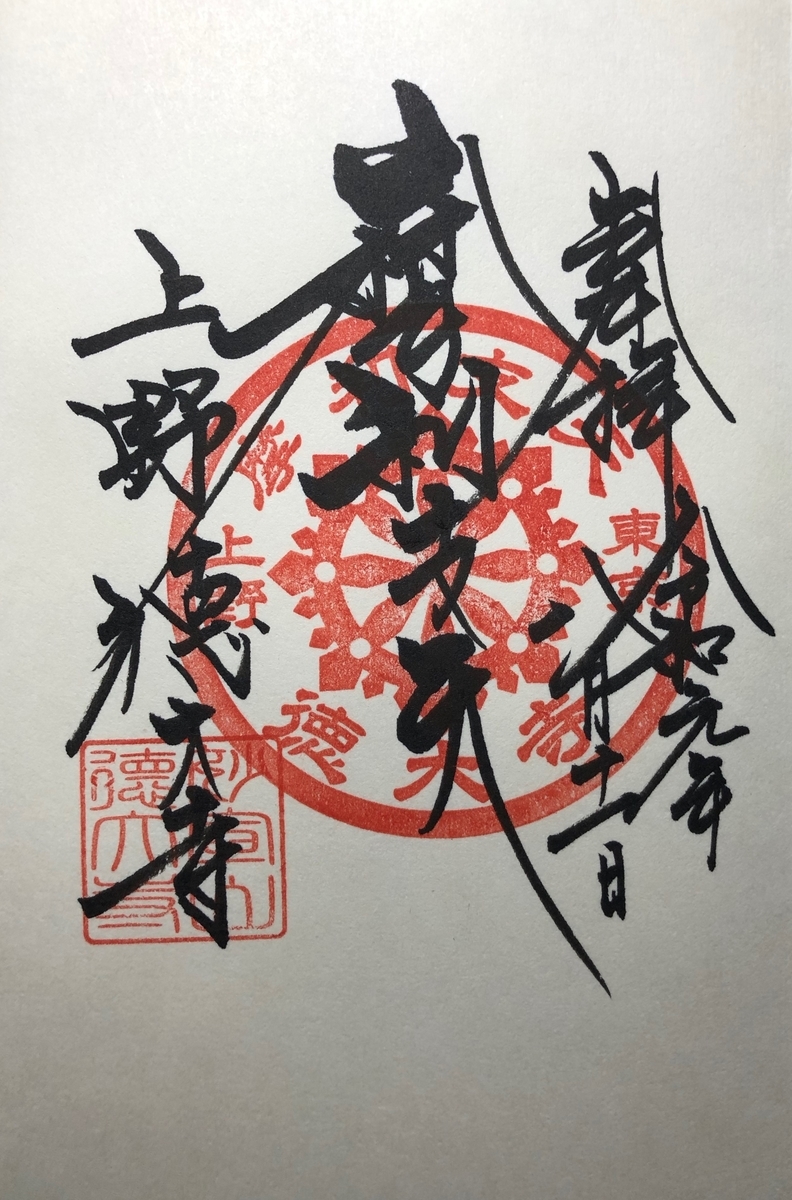 奉拝
令和元年
八月十一日
摩利支天
上野
徳大寺
摩利支天
東京
上野
徳大寺
妙宣山
徳大寺